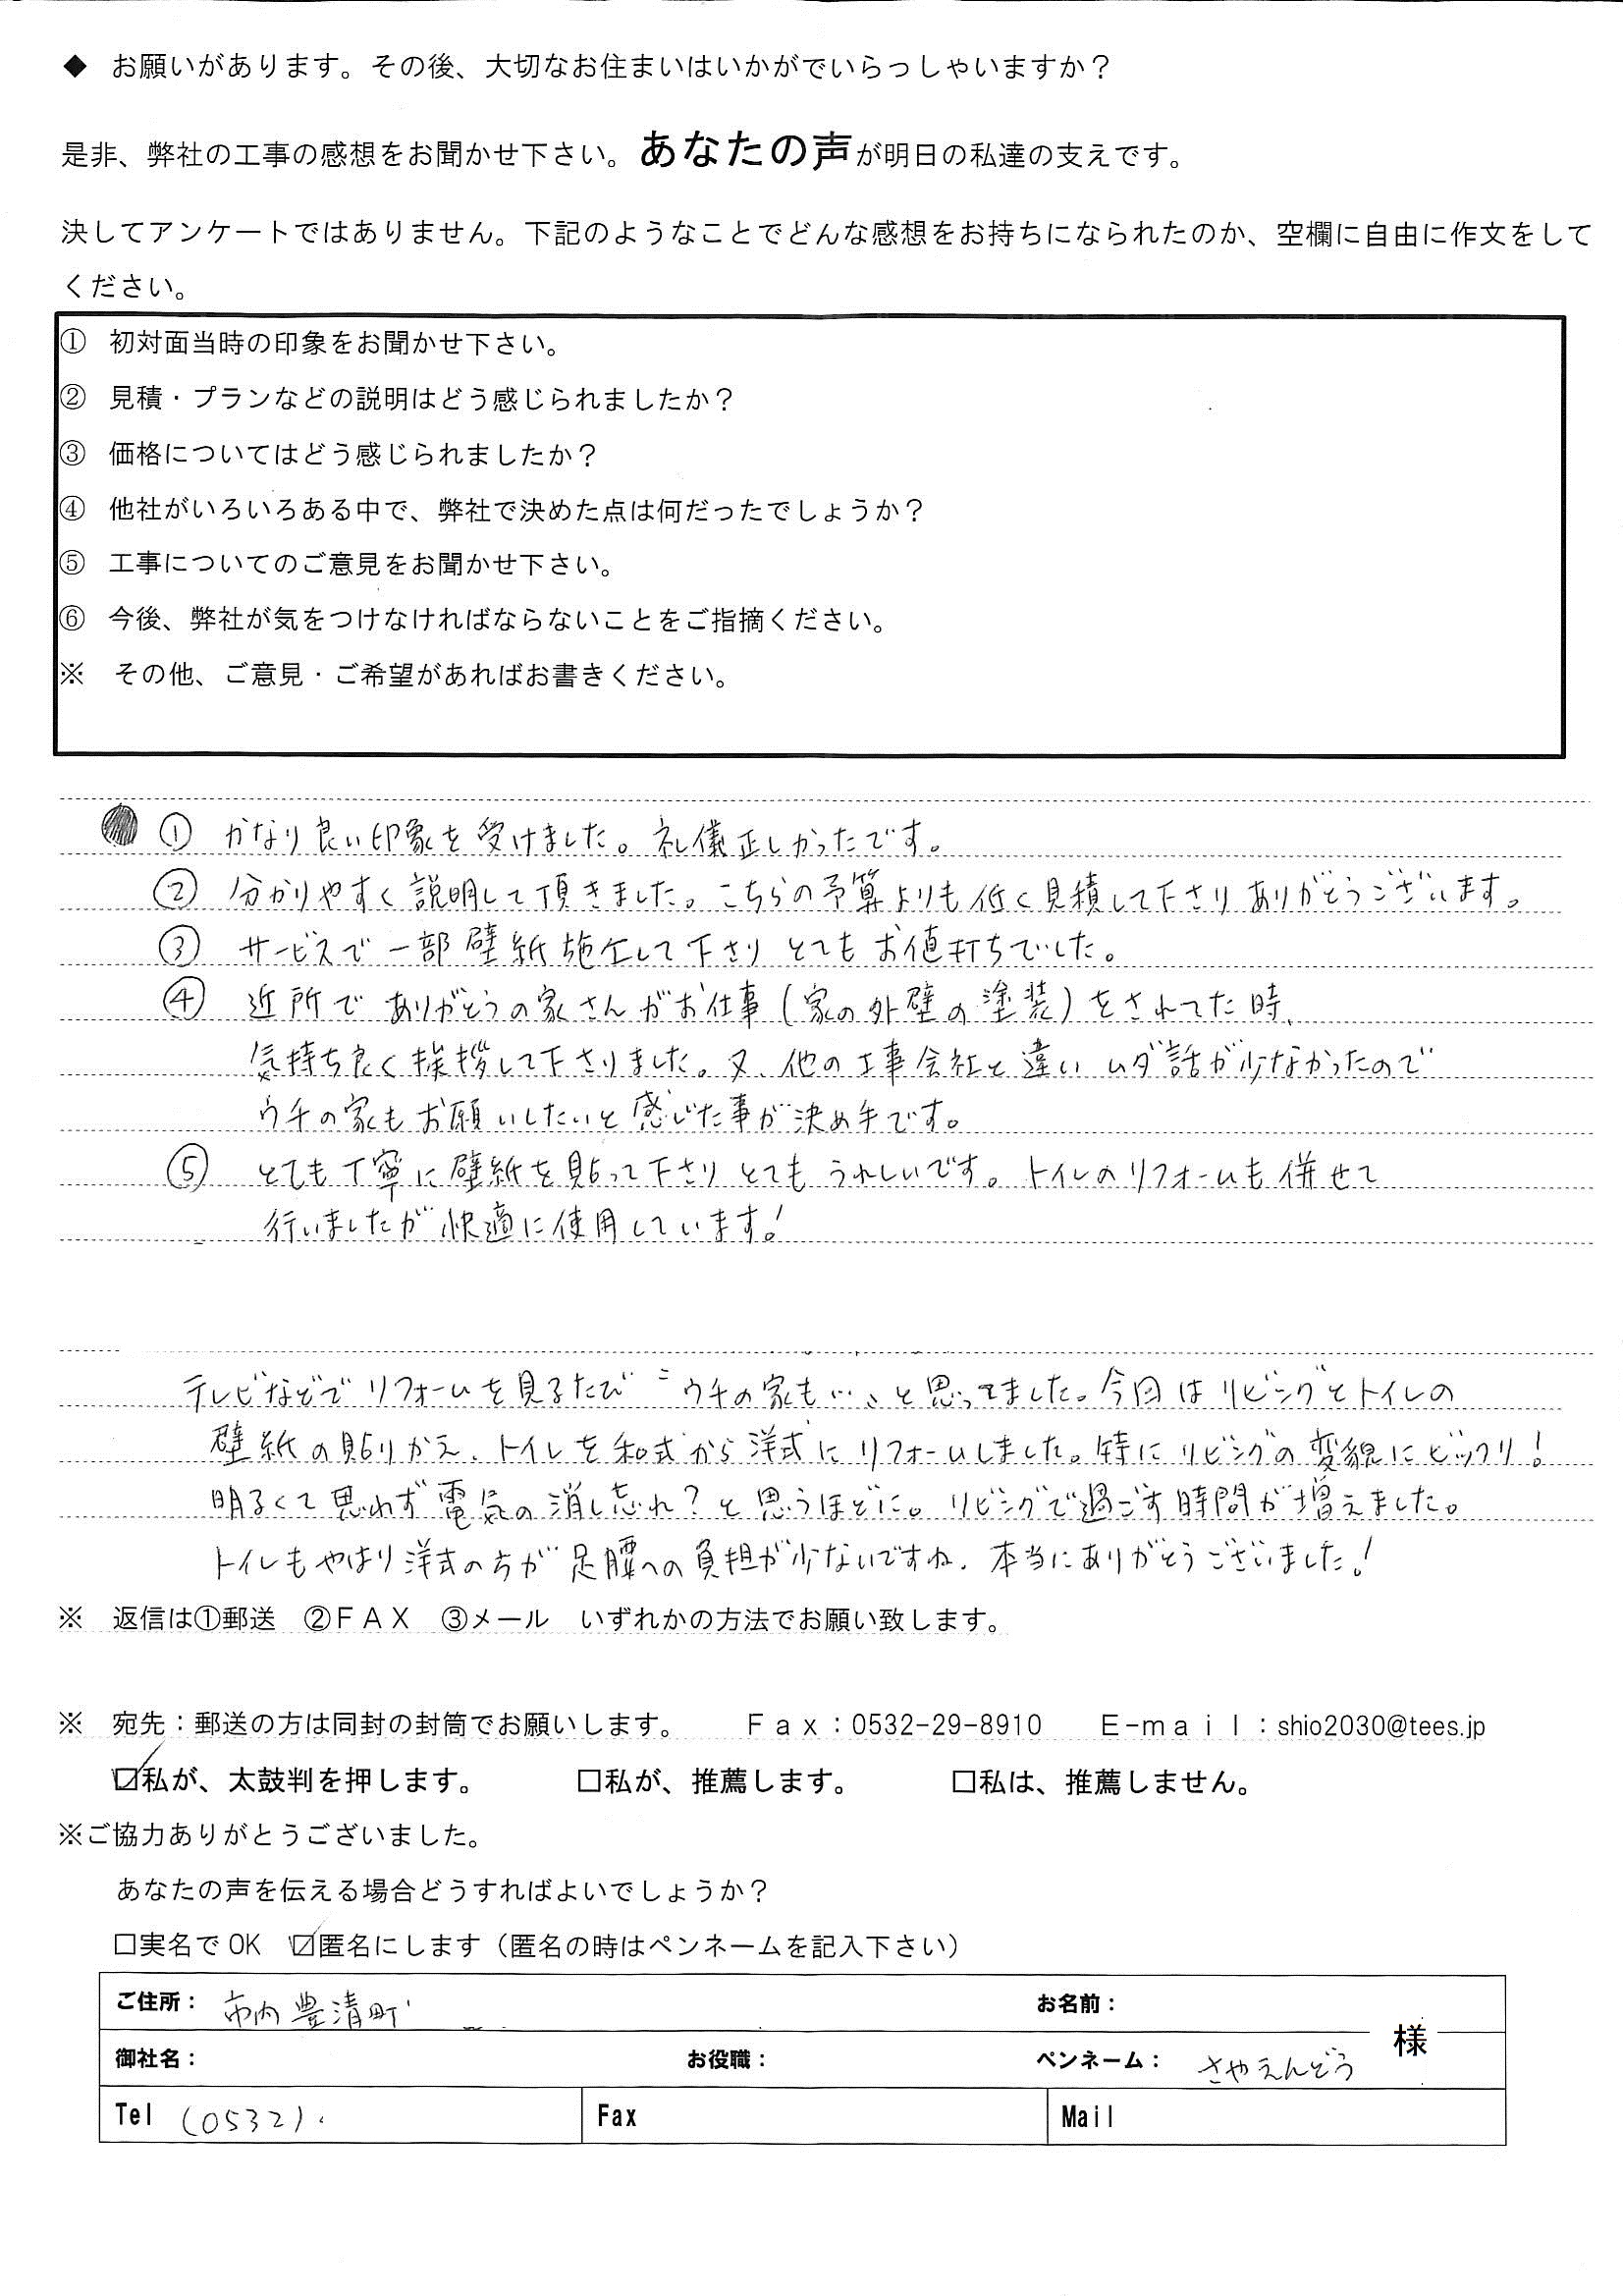 ◆ お願いがあります。その後、大切なお住まいはいかがでいらっしゃいますか？
是非、弊社の工事の感想をお聞かせ下さい。あなたの声が明日の私達の支えです。
決してアンケートではありません。下記のようなことでどんな感想をお持ちになられたのか、空欄に自由に作文をして
ください。
① 初対面当時の印象をお聞かせ下さい。
② 見積・プランなどの説明はどう感じられましたか？
③ 価格についてはどう感じられましたか？
④ 他社がいろいろある中で、弊社で決めた点は何だったでしょうか？
⑤ 工事についてのご意見をお聞かせ下さい。
⑥ 今後、弊社が気をつけなければならないことをご指摘ください。
※ その他、ご意見・ご希望があればお書きください。
① かなり良い印象を受けました。礼儀正しかったです。
② 分かりやすく説明して頂きました。こちらの予算よりも低く見積して下さりありがとうございます。
③ サービスで一部壁紙施工して下さり とてもお値打ちでした。
④ 近所で ありがとうの家さんがお仕事(家の外壁の塗装)をされてた時、
気持ち良く挨拶して下さりました。又、他の工事会社と違い ムダ話が少なかったので
ウチの家もお願いしたいと感じた事が決め手です。
⑤ とても丁寧に壁紙を貼って下さり とてもうれしいです。トイレのリフォームも併せて
行いましたが快適に使用しています！
テレビなどでリフォームを見るたび〝ウチの家も…〟と思ってました。今回はリビングとトイレの
壁紙の貼りかえ、トイレを和式から洋式にリフォームしました。特にリビングの変貌にビックリ！
明るくて思わず電気の消し忘れ？と思うほどに。リビングで過ごす時間が増えました。
トイレもやはり洋式の方が足腰への負担が少ないですね。本当にありがとうございました！
※ 返信は①郵送 ②ＦＡＸ ③メール いずれかの方法でお願い致します。
※ 宛先：郵送の方は同封の封筒でお願いします。 Ｆａｘ：0532-29-8910 Ｅ-ｍａｉｌ：shio2030@tees.jp
☑私が、太鼓判を押します。 □私が、推薦します。 □私は、推薦しません。
※ご協力ありがとうございました。
あなたの声を伝える場合どうすればよいでしょうか？
□実名でOK ☑匿名にします（匿名の時はペンネームを記入下さい）
ご住所： 市内豊清町 お名前： 様
御社名： お役職： ペンネーム： さやえんどう
Tel (0532) Fax Mail